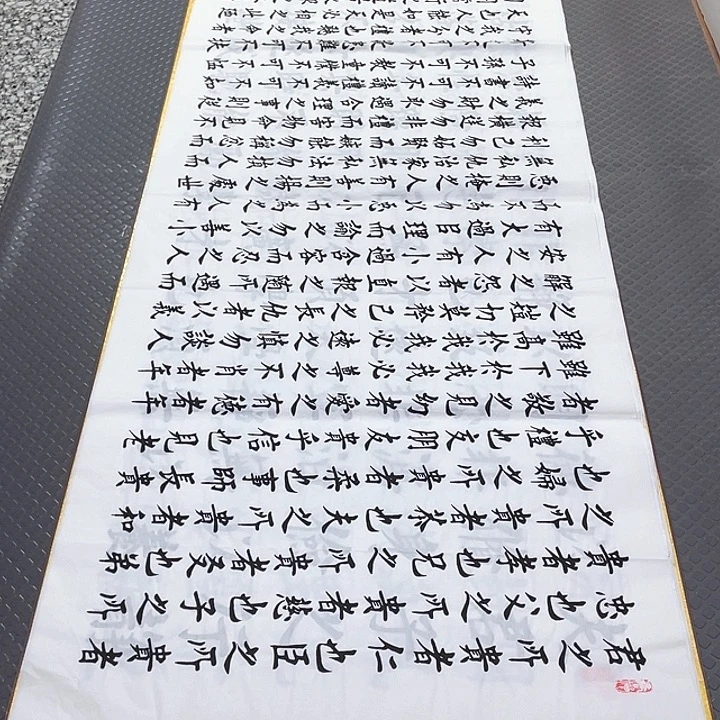 君之所貴者仁也臣之所貴者
忠也父之所貴者慈也子之所
貴者孝也兄之所貴者友也弟
之所貴者恭也夫之所貴者和
也婦之所貴者柔也事師長貴
乎禮也交朋友貴乎信也見老
者敬之見幼者愛之有德者年
雖下於我我必尊之不肖者年
雖高於我我必遠之慎勿談人
之短切莫矜己之長仇者以義
解之怨者以直報之隨所遇而
安之人有小過含容而忍之人
有大過以理而諭之勿以善小
而不為勿以惡小而為之人有
惡則掩之人有善則揚之處世
無私仇治家無私法勿損人而
利己勿妒賢而嫉能勿而
報橫逆勿非禮而害物命見不
義之財勿取遇合理之事則從
詩書不可不讀禮義不可不知
子孫不可不教童僕不可不恤
斯文不可不敬患難不可不扶
守我之分者禮也聽我之命者
天也人能如是天必相之此